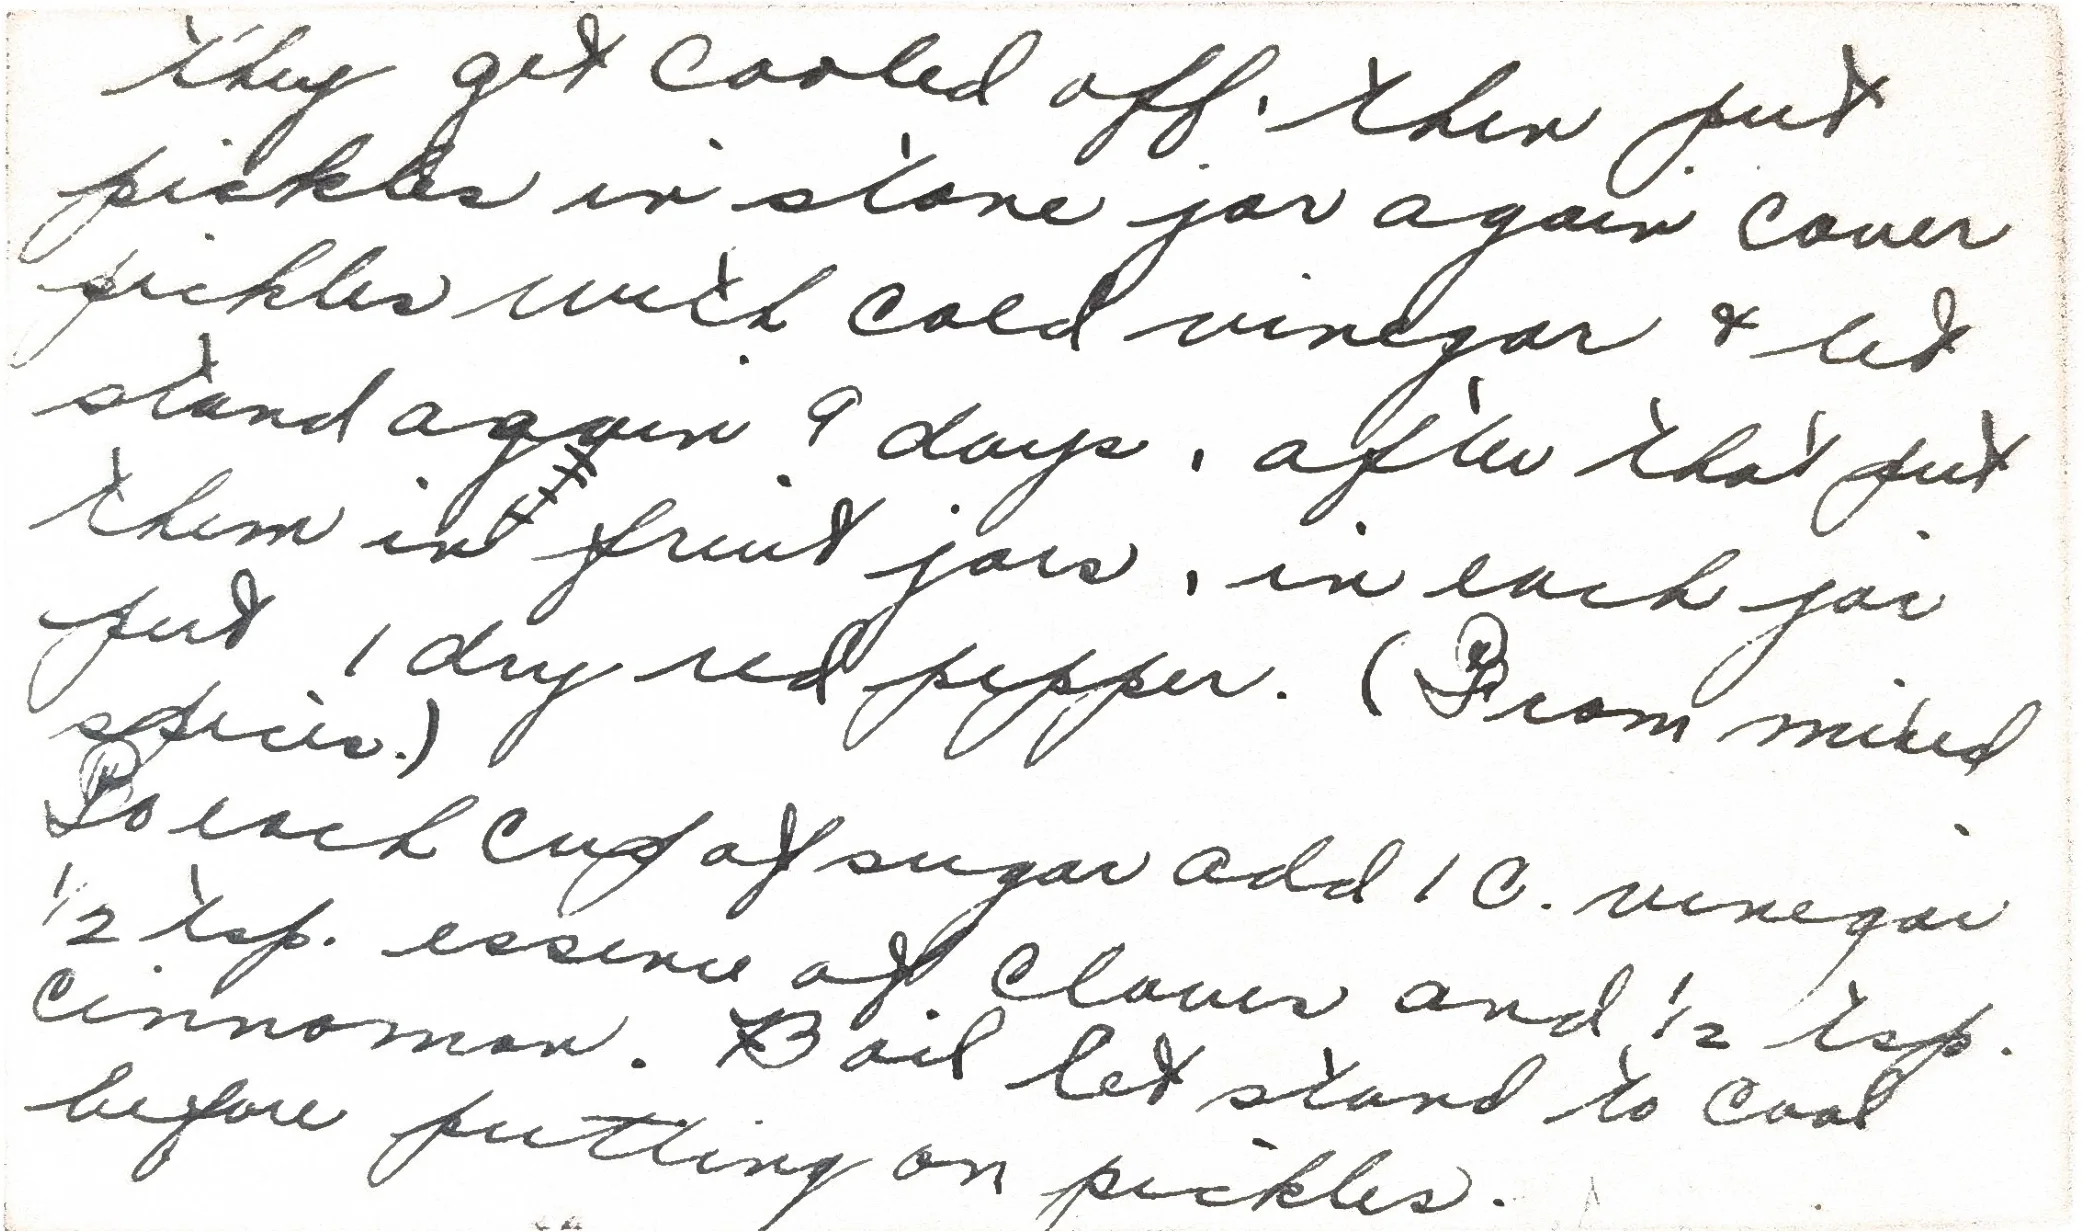 they get cooled off, then put
pickles in stone jar again cover
pickles with cold vinegar & let
stand again 9 days, after that put
them in fruit jars, in each jar
put 1 dry red pepper. (From mixed
spices.)
To each cup of sugar add 1 C. vinegar
1/2 tsp. essence of cloves and 1/2 tsp.
cinnamon. Boil let stand to cool
before putting on pickles.